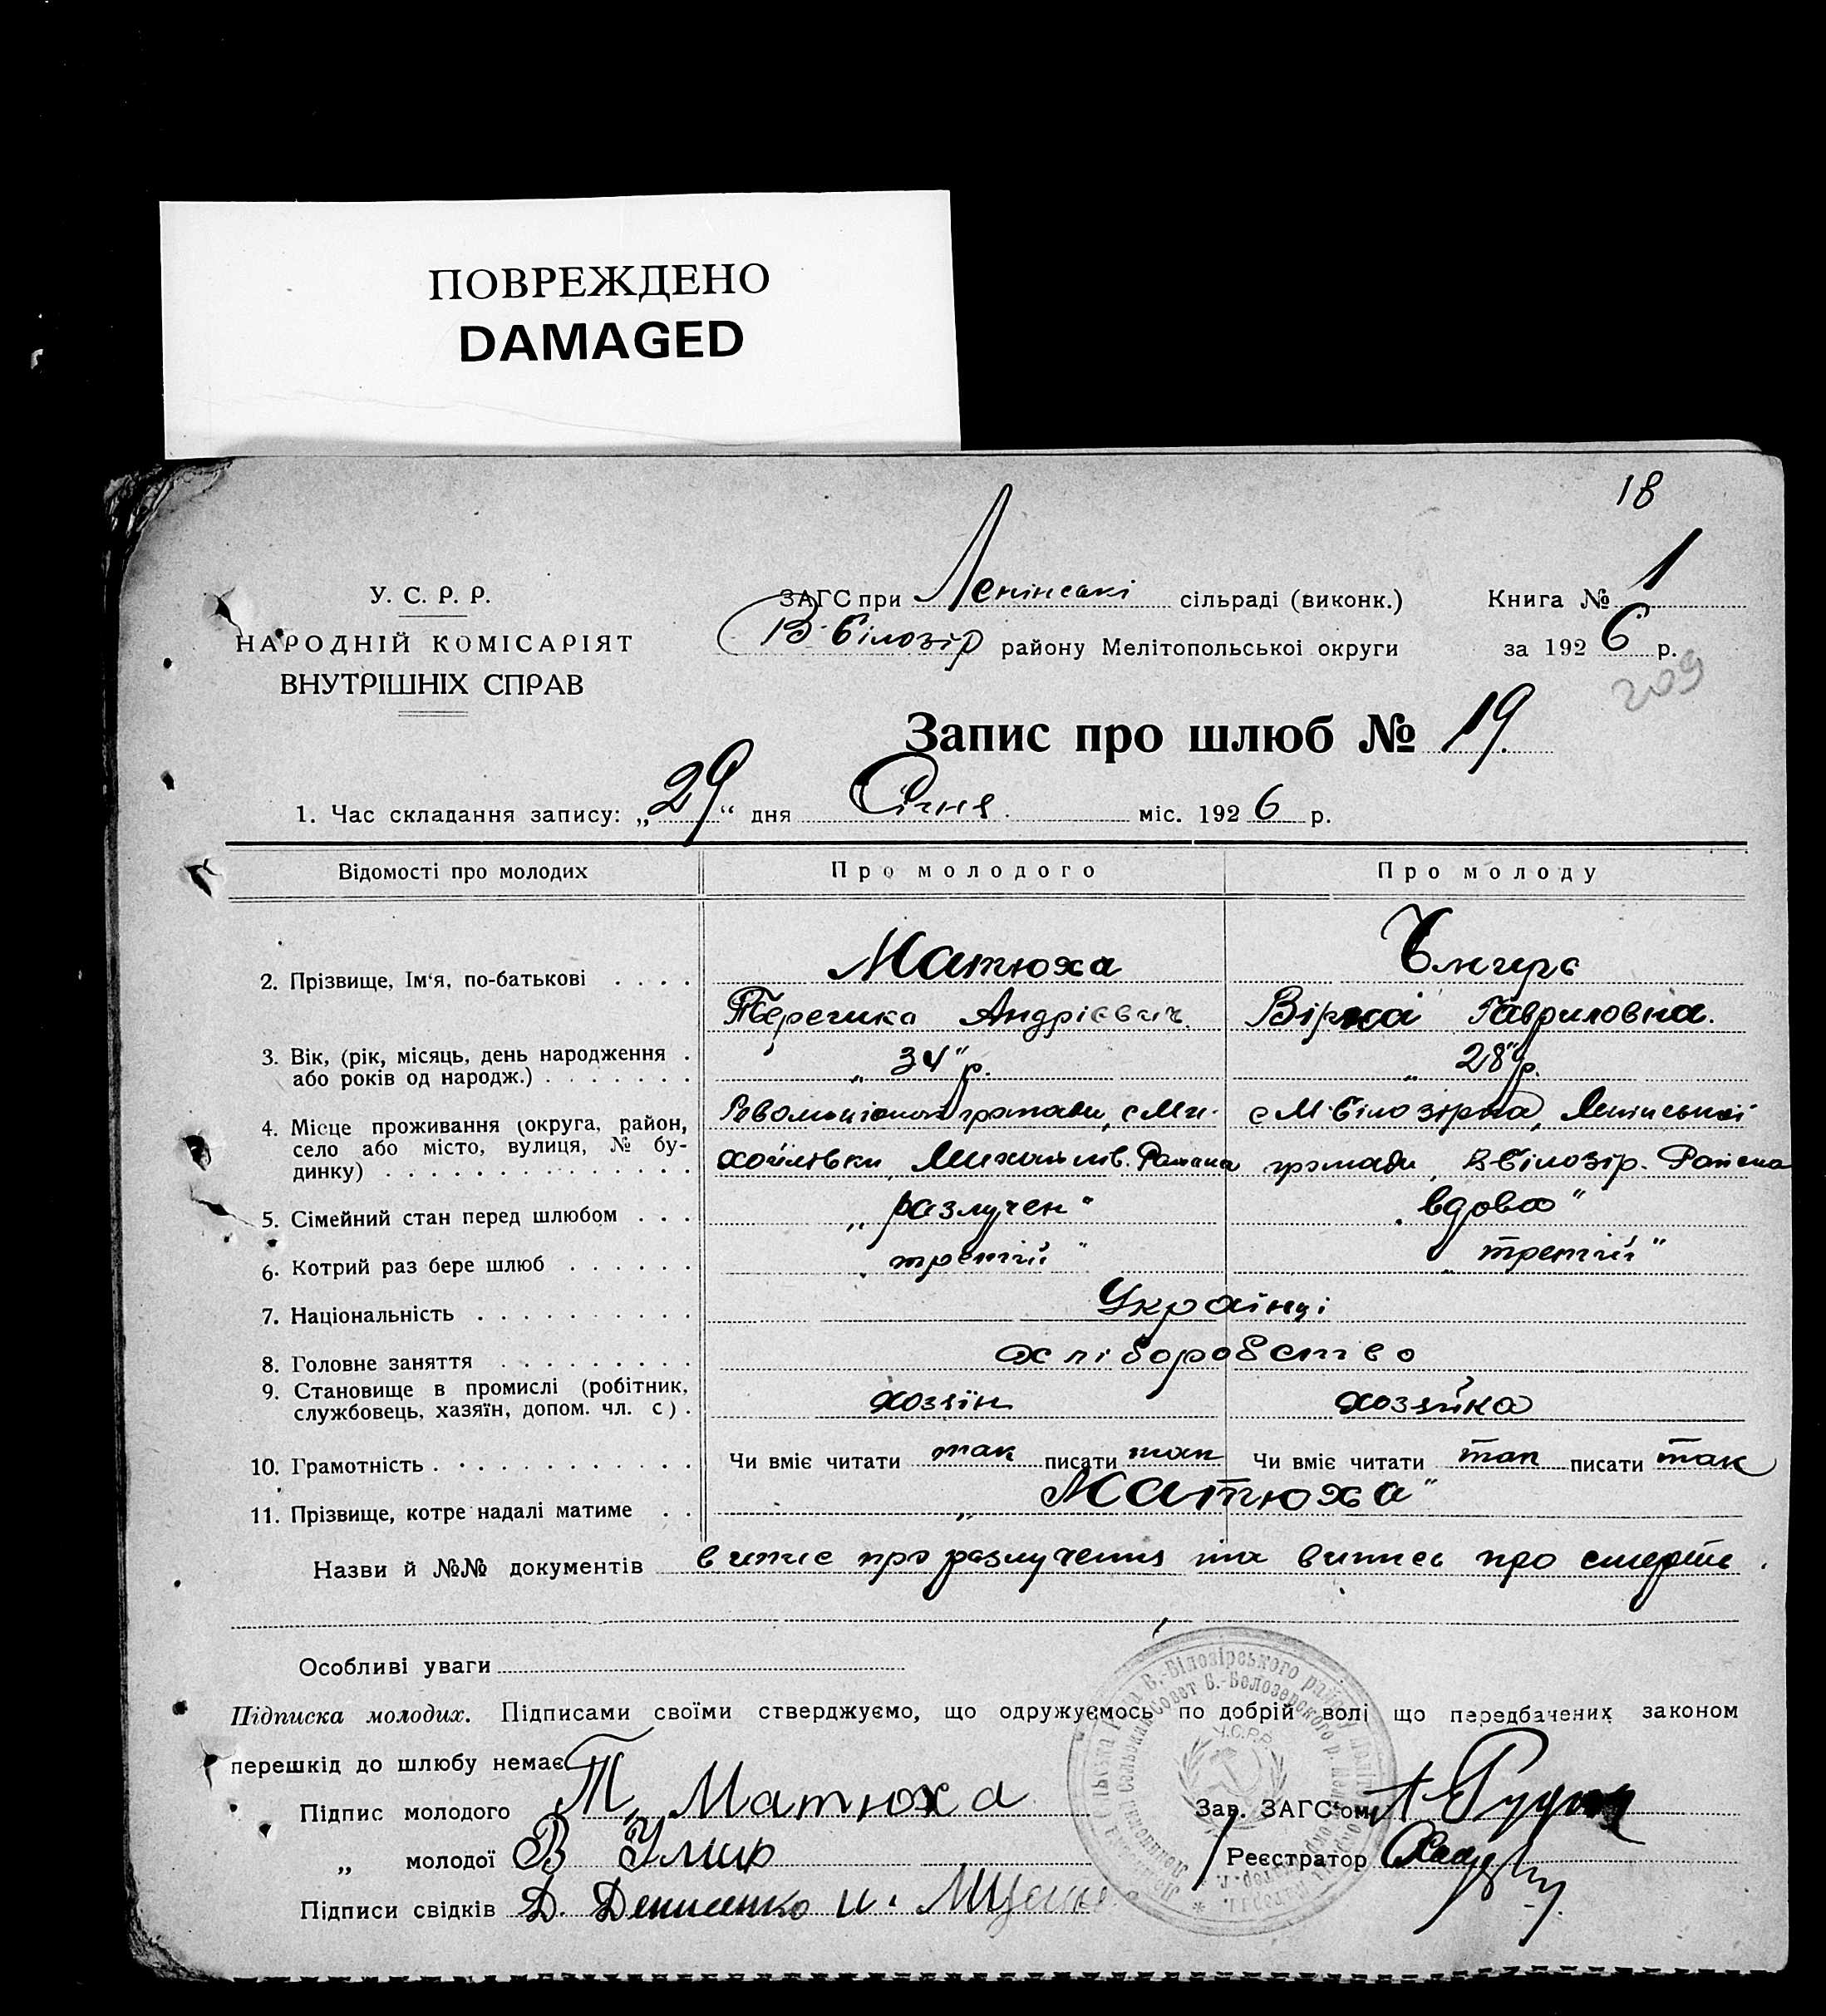 ПОВРЕЖДЕНО
DAMAGED
18
У. С. Р. Р.
НАРОДНІЙ КОМІСАРІЯТ
ВНУТРІШНІХ СПРАВ
ЗАГС при Ленінські сільраді (виконк.)
В-Білозір району Мелітопольської округи
Книга № 1
за 1926 р.
209
Запис про шлюб № 19
1. Час складання запису: „29“ дня Січня міс. 1926 р.
Відомості про молодих Про молодого Про молоду
2. Прізвище, Ім‘я, по-батькові . . . . Матюха
Андрієвич Гавриловна.
3. Вік, (рік, місяць, день народження . „34" р. „28" р.
або років од народж.) . . . . . . .
4. Місце проживання (округа, район, громади, с Ми- с М-Білозірка, Ленінської
село або місто, вулиця, № бу- хайлівки Михайлів. Района громади В-Білозір. Района
динку) . . . . . . . . . . . . . .
5. Сімейний стан перед шлюбом . . . „разлучен" „вдова"
6. Котрий раз бере шлюб . . . . . . „третій" „третій"
7. Національність . . . . . . . . . . Українці
8. Головне заняття . . . . . . . . . хліборобство
9. Становище в промислі (робітник,
службовець, хазяїн, допом. чл. с) . хозяїн хозяйка
10. Грамотність . . . . . . . . . . . . Чи вміє читати так писати так Чи вміє читати так писати так
11. Прізвище, котре надалі матиме . . „Матюха"
Назви й №№ документів випис про разлучення та випись про смерть.
Особливі уваги
Підписка молодих. Підписами своїми стверджуємо, що одружуємось по добрій волі що передбачених законом
перешкід до шлюбу немає
Підпис молодого Т. Матюха
Зав. ЗАГС'ом
„ молодої В
Реєстратор
Підписи свідків Д. Денисенко и.
В.-Білозірського району
Совет В.-Белозерского р.
У.С.Р.Р.